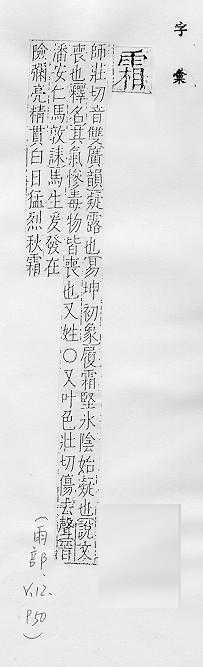 字彙
霜
師壯切音雙廣韻凝露也易坤初象履霜堅氷陰始凝也說文
喪也釋名其氣慘毒物皆喪也又姓○又叶色壯切傷去聲晉
潘安仁馬汧誄馬生爰發在
險彌亮精貫白日猛烈秋霜
(雨部.
V.12.
P50)